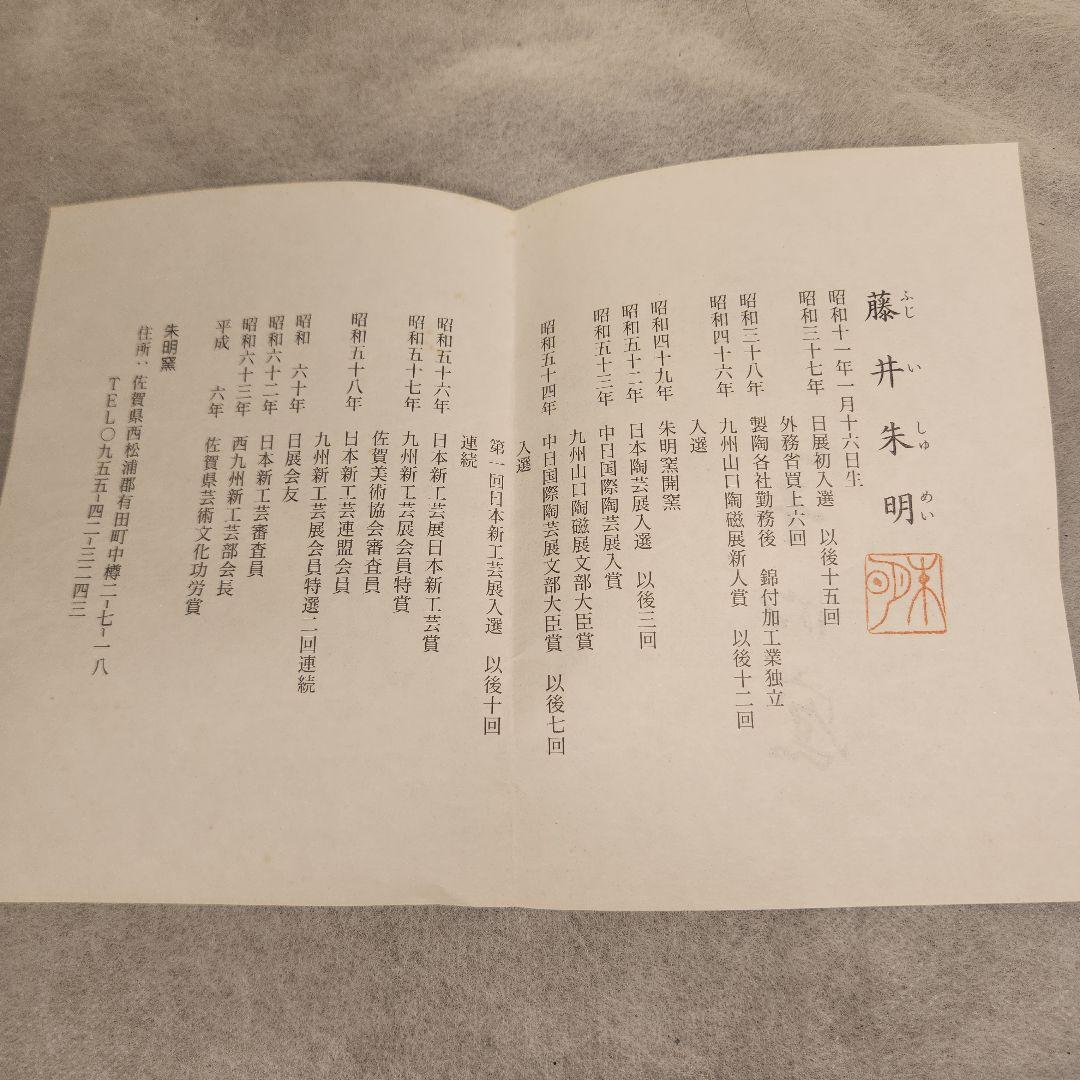 藤井朱明
ふじいしゅめい
朱明
昭和十一年一月十六日生
昭和三十七年 日展初入選 以後十五回
外務省買上六回
昭和三十八年 製陶各社勤務後 錦付加工業独立
昭和四十六年 九州山口陶磁展新人賞 以後十二回
入選
昭和四十九年 朱明窯開窯
昭和五十二年 日本陶芸展入選 以後三回
昭和五十三年 中日国際陶芸展入賞
九州山口陶磁展文部大臣賞
昭和五十四年 中日国際陶芸展文部大臣賞 以後七回
入選
第一回日本新工芸展入選 以後十回
連続
昭和五十六年 日本新工芸展日本新工芸賞
昭和五十七年 九州新工芸展会員特賞
佐賀美術協会審査員
昭和五十八年 日本新工芸連盟会員
九州新工芸展会員特選二回連続
昭和 六十年 日展会友
昭和六十二年 日本新工芸審査員
昭和六十三年 西九州新工芸部会長
平成 六年 佐賀県芸術文化功労賞
朱明窯
住所：佐賀県西松浦郡有田町中樽二－七－一八
TEL〇九五五－四二－三二四三